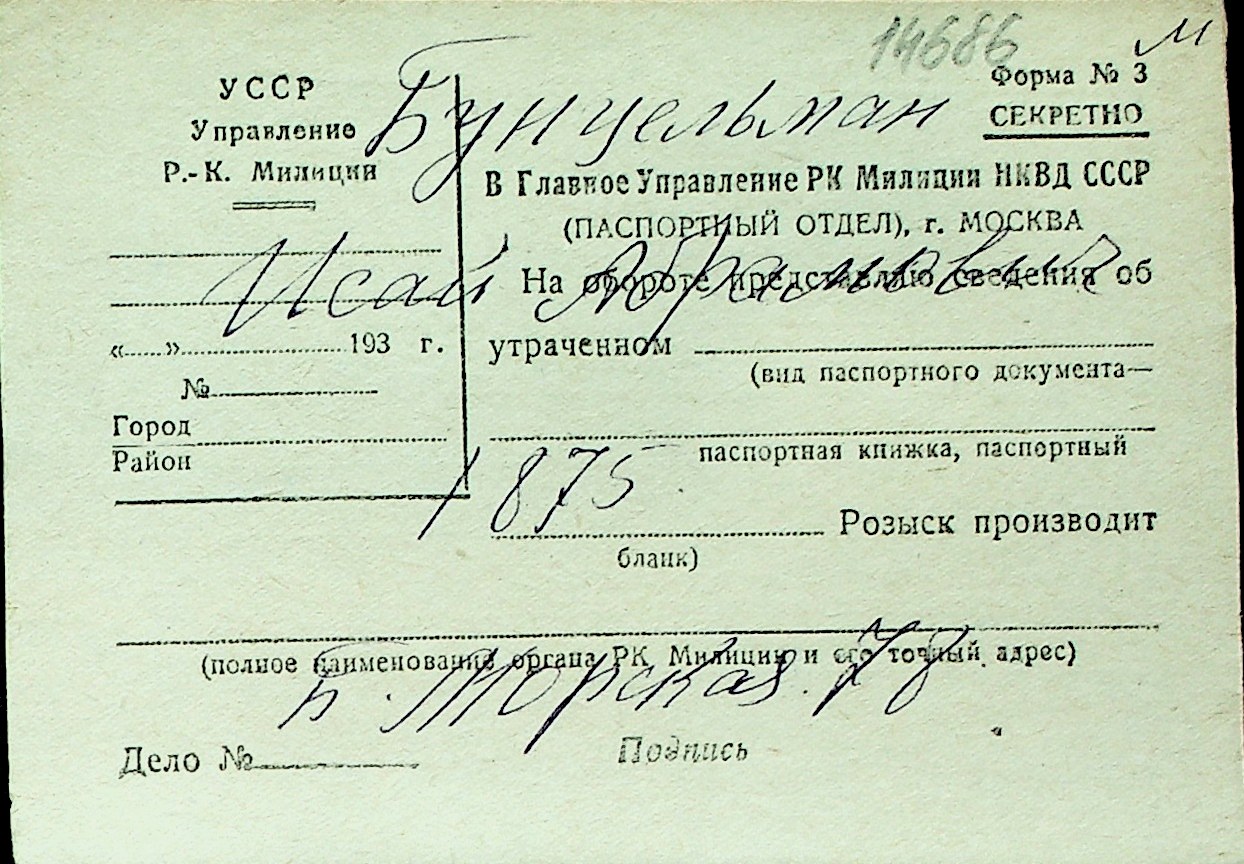 14686
м
УССР
Управление
Р.-К. Милиции
Форма № 3
СЕКРЕТНО
Бунцельман
В Главное Управление РК Милиции НКВД СССР
(ПАСПОРТНЫЙ ОТДЕЛ), г. МОСКВА
Исай Абрамович
На обороте представляю сведения об
«......» 193 г.
утраченном
(вид паспортного документа—
№
Город
Район
паспортная книжка, паспортный
1875
Розыск производит
бланк)
(полное наименование органа РК Милиции и его точный адрес)
Б. Морская 78
Дело №
Подпись